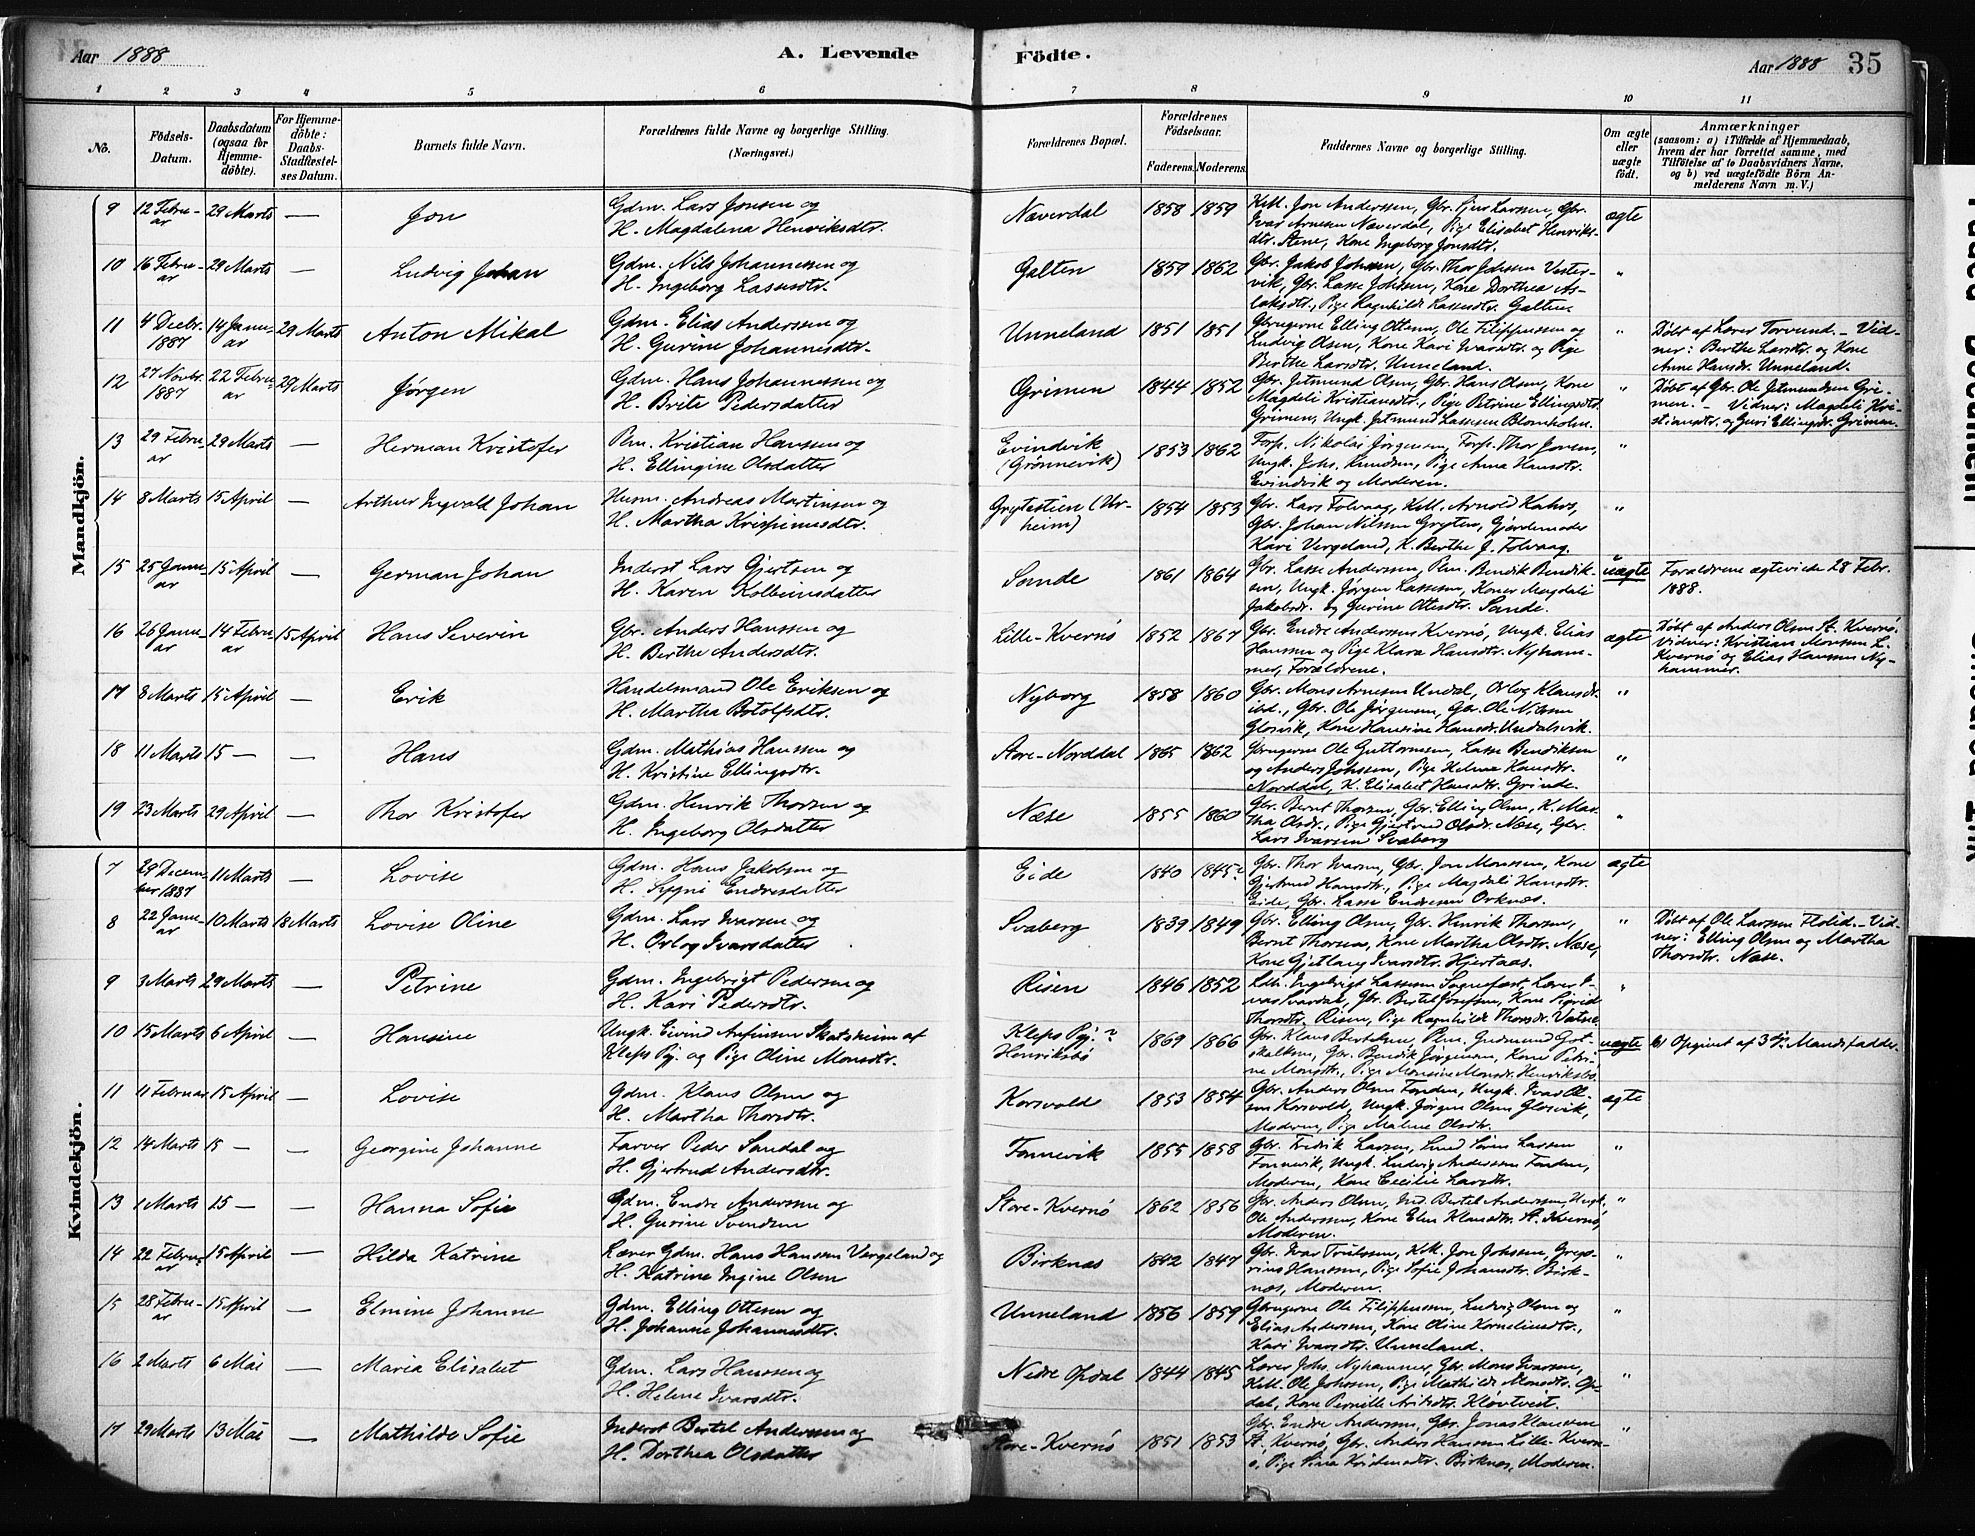 Aar 1888
A. Levende
Födte.
Aar 1888
35
1 2 3 4 5 6 7 8 9 10 11
No.
Födsels-Datum.
Daabsdatum (ogsaa for Hjemme-döbte).
For Hjemme-döbte: Daabs-Stadfæstel-ses Datum.
Barnets fulde Navn.
Forældrenes fulde Navne og borgerlige Stilling. (Næringsvei.)
Forældrenes Bopæl.
Forældrenes Födselsaar.
Faderens. Moderens.
Faddernes Navne og borgerlige Stilling.
Om ægte eller uægte födt.
Anmærkninger
(saasom: a) i Tilfælde af Hjemmedaab, hvem der har forrettet samme, med Tilföielse af to Daabsvidners Navne, og b) ved uægtefödte Börn Anmelderens Navn m. V.)
Mandkjön.
9 12 Febru-ar 29 Marts — Jon
Gdm. Lars Jonsen og
H. Magdalena Henriksdtr.
Næverdal 1858 1859
Kill. Jon Anderssen, Gbr.
Ivar Arnesen Næverdal, Pige Elisabet Henriks-
dtr. Kone Ingeborg Jonsdtr.
ægte
10 16 Febru-ar 29 Marts — Ludvig Johan
Gdm. Nils Johannessen og
H. Ingeborg Lassesdtr.
Galten 1859 1862
Gbr. Jakob Johnsen, Gbr. Thor Vester-
vik, Gbr. Lasse Johnsen, Kone Dorthea As-
laksdtr., Pige Ragnhilde Lassesdtr. Galten
"
11 4 Decbr. 1887 14 Janu-ar 29 Marts Anton Mikal
Gdm. Elias Anderssen og
H. Gurine Johannesdtr.
Unneland 1851 1851
Gbrugerne Elling Ottesen, Ole Filippussen og
Ludvig Olsen, Kone Kari Ivarsdtr. og Pige
Berthe Larsdtr. Unneland.
"
Døbt af Lærer Torvund. — Vid-
ner: Berthe Larsdtr. og Kone
Anne Hansdr. Unneland.
12 27 Novbr. 1887 22 Febru-ar 29 Marts Jørgen
Gdm. Hans Johannessen og
H. Brite Pedersdatter
Grimen 1844 1852
Gbr. Jetmund Olsen, Gbr. Hans Olsen, Kone
Magdeli Kristiansdtr., Pige Petrine Ellingsdtr.
Grimen, Ungk. Jetmund Lassesen Blomholm.
"
Døbt af Gbr. Ole Jetmundsen Gri-
men. — Vidner: Magdeli Kri-
stiansdtr. og Guri Ellingsdtr. Grimen.
13 29 Febru-ar 29 Marts — Herman Kristofer
Plm. Kristian Hansen og
H. Ellingine Olsdatter
Evindvik
(Grønnevik) 1853 1862
Forp. Nikolai Jørgensen, Forp. Thor
Ungk. Johs. Knudsen, Pige Anna Hansdtr.
Evindvik og Moderen.
"
14 8 Marts 15 April — Arthur Ingvald Johan
Husm. Andreas Martinsen og
H. Martha Krispinusdtr.
(Ur-
heim) 1854 1853
Gbr. Lars Folvaag, Kill. Arnold Kahrs,
Gbr. Johan Nilsen Grytten, Gjordemoder
Kari Vergeland, K. Berthe J. Folvaag.
"
15 25 Janu-ar 15 April — German Johan
Inderst Lars Gjertsen og
H. Karen Kolbeinsdatter
Sande 1861 1864
Gbr. Lasse Anderssen, Plm. Bendik Bendik-
sen, Ungk. Jørgen Lassesen, Koner Magdeli
Jakobsdr. og Gurine Ottesdtr. Sande.
uægte
Forældrene ægteviede 28 Febr.
1888.
16 26 Janu-ar 14 Febru-ar 15 April Hans Severin
Gbr. Anders Hanssen og
H. Berthe Andersdtr.
Lille-Kvernø 1852 1867
Gbr. Endre Anderssen Kvernø, Ungk. Elias
Hanssen og Pige Klara Hansdtr. Nyham-
mer, Forældrene.
ægte
Døbt af Anders Olsen St. Kvernø.
Vidner: Kristian Monssen L.
Kvernø og Elias Hanssen Ny-
hammer.
17 8 Marts 15 April — Erik
Handelsmand Ole Eriksen og
H. Martha Botolfsdtr.
Nyborg 1858 1860
Gbr. Mons Arnesen Undal, Orlog Klausdr.
ibd., Gbr. Ole Jørgensen, Gbr. Ole Nilssen
Glosvik, Kone Hansine Hansdr. Undalsvik.
"
18 11 Marts 15 — — Hans
Gdm. Mathias Hanssen og
H. Kristine Ellingsdtr.
Store-Norddal 1865 1862
Gbrugerne Ole Guttormsen, Lasse Bendiksen
og Anders Johssen, Pige Helene Hansdtr.
Norddal, K. Elisabet Hansdtr. Grinde.
"
19 23 Marts 29 April — Thor Kristofer
Gdm. Henrik Thorsen og
H. Ingeborg Olsdatter
Næse 1855 1860
Gbr. Bernt Thorsen, Gbr. Elling Olsen, K. Mar-
tha Olsdr., Pige Gjertrud Olsdr. Næse, Gbr.
Lars Ivarsen Svaberg
"
Kvindekjön.
7 29 Decem-ber 1887 11 Marts — Lovise
Gdm. Hans Jakobsen og
H. Endresdatter
Eide 1840 1845?
Gbr. Thor Ivarsen, Gbr. Jon Monssen, Kone
Gjertrud Hansdtr., Pige Magdeli Hansdtr.
Eide, Gbr. Lasse Endresen Orknæs.
ægte
8 22 Janu-ar 10 Marts 18 Marts Lovise Oline
Gdm. Lars Ivarsen og
H. Orlog Ivarsdatter
Svaberg 1839 1849
Gbr. Elling Olsen, Gbr. Henrik Thorsen,
Bernt Thorsen, Kone Martha Olsdtr. Næse,
Kone Gjetlaug Ivarsdtr. Hjertaas.
"
Døbt af Ole Larssen Flolid. — Vid-
ner: Elling Olsen og Martha
Thorsdtr. Næse.
9 3 Marts 29 Marts — Petrine
Gdm. Ingebrigt Pedersen og
H. Kari Pedersdtr.
Risen 1846 1852
Ldh. Ingebrigt Lassesen Sognefæst, Lærer I-
var Svardal, Gbr. Bertel Josefsen, Kone Sigrid
Thorsdtr. Risen, Pige Ragnhilde Thorsdr. Vatne.
"
10 15 Marts 6 April — Hansine
Ungk. Eivind Arfinsen Skatsheim af
Kleps Pgj. og Pige Oline Monsdtr.
Kleps Pgj.?
Henriksbø 1869 1866
Gbr. Klaus Bertelsen, Plm. Gudmund Got-
skalksen, Gbr. Bendik Jørgensen, Kone Petri-
ne Monsdtr., Pige Monsine Monsdr. Henriksbø.
uægte
b) Opgivet af 3die Mandsfadder.
11 11 Februar 15 April — Lovise
Gdm. Klaus Olsen og
H. Martha Thorsdtr.
Korsvold 1853 1854
Gbr. Anders Olsen Tonden, Ungk. Ivar Ol-
sen Korsvold, Ungk. Jørgen Olsen Glosvik,
Moderen, Pige Malene Olsdtr.
ægte
12 14 Marts 15 — — Georgine Johanne
Farver Peder Sandal og
H. Gjertrud Andersdtr.
Tonnevik 1855 1858
Gbr. Fredrik Larsen, Søren Lassen
Tonnevik, Ungk. Ludvig Anderssen Tonden,
Moderen, Kone Cecilie Larsdtr.
"
13 1 Marts 15 — — Hanna Sofie
Gdm. Endre Anderssen og
H. Gurine Svendsen
Store-Kvernø 1862 1856
Gbr. Anders Olsen, Ind. Bertel Anderssen, Ungk.
Ole Anderssen, Kone Elen Klausdtr. St. Kvernø,
Moderen.
"
14 22 Febru-ar 15 April — Hilda Katrine
Lærer Gdm. Hans Hanssen Vergeland og
H. Katrine Ingine Olsen
Birknæs 1842 1847
Gbr. Ivar Truelssen, Kill. Jon Johssen, Grego-
rius Hanssen, Pige Sofie Johannsdtr. Birk-
næs, Moderen.
"
15 28 Febru-ar 15 April — Elmine Johanne
Gdm. Elling Ottesen og
H. Johanne Johannesdtr.
Unneland 1856 1859
Gbrugerne Ole Filippussen, Ludvig Olsen og
Elias Anderssen, Kone Oline Korneliusdtr.,
Kari Ivarsdtr. Unneland.
"
16 2 Marts 6 Mai — Maria Elisabet
Gdm. Lars Hanssen og
H. Helene Ivarsdtr.
Nedre Opdal 1844 1845
Lærer Johs. Nyhammer, Gbr. Mons Ivarsen,
Kill. Ole Johssen, Pige Mathilde Monsdtr. Op-
dal, Kone Pernille Kløvtveit.
"
17 29 Marts 13 Mai — Mathilde Sofie
Inderst Bertel Anderssen og
H. Dorthea Olsdatter
Store-Kvernø 1851 1853
Gbr. Endre Anderssen, Gbr. Jonas Klaussen
St. Kvernø, Gbr. Anders Hanssen Lille-Kvern-
ø, Pige Birknes, Moderen.
"